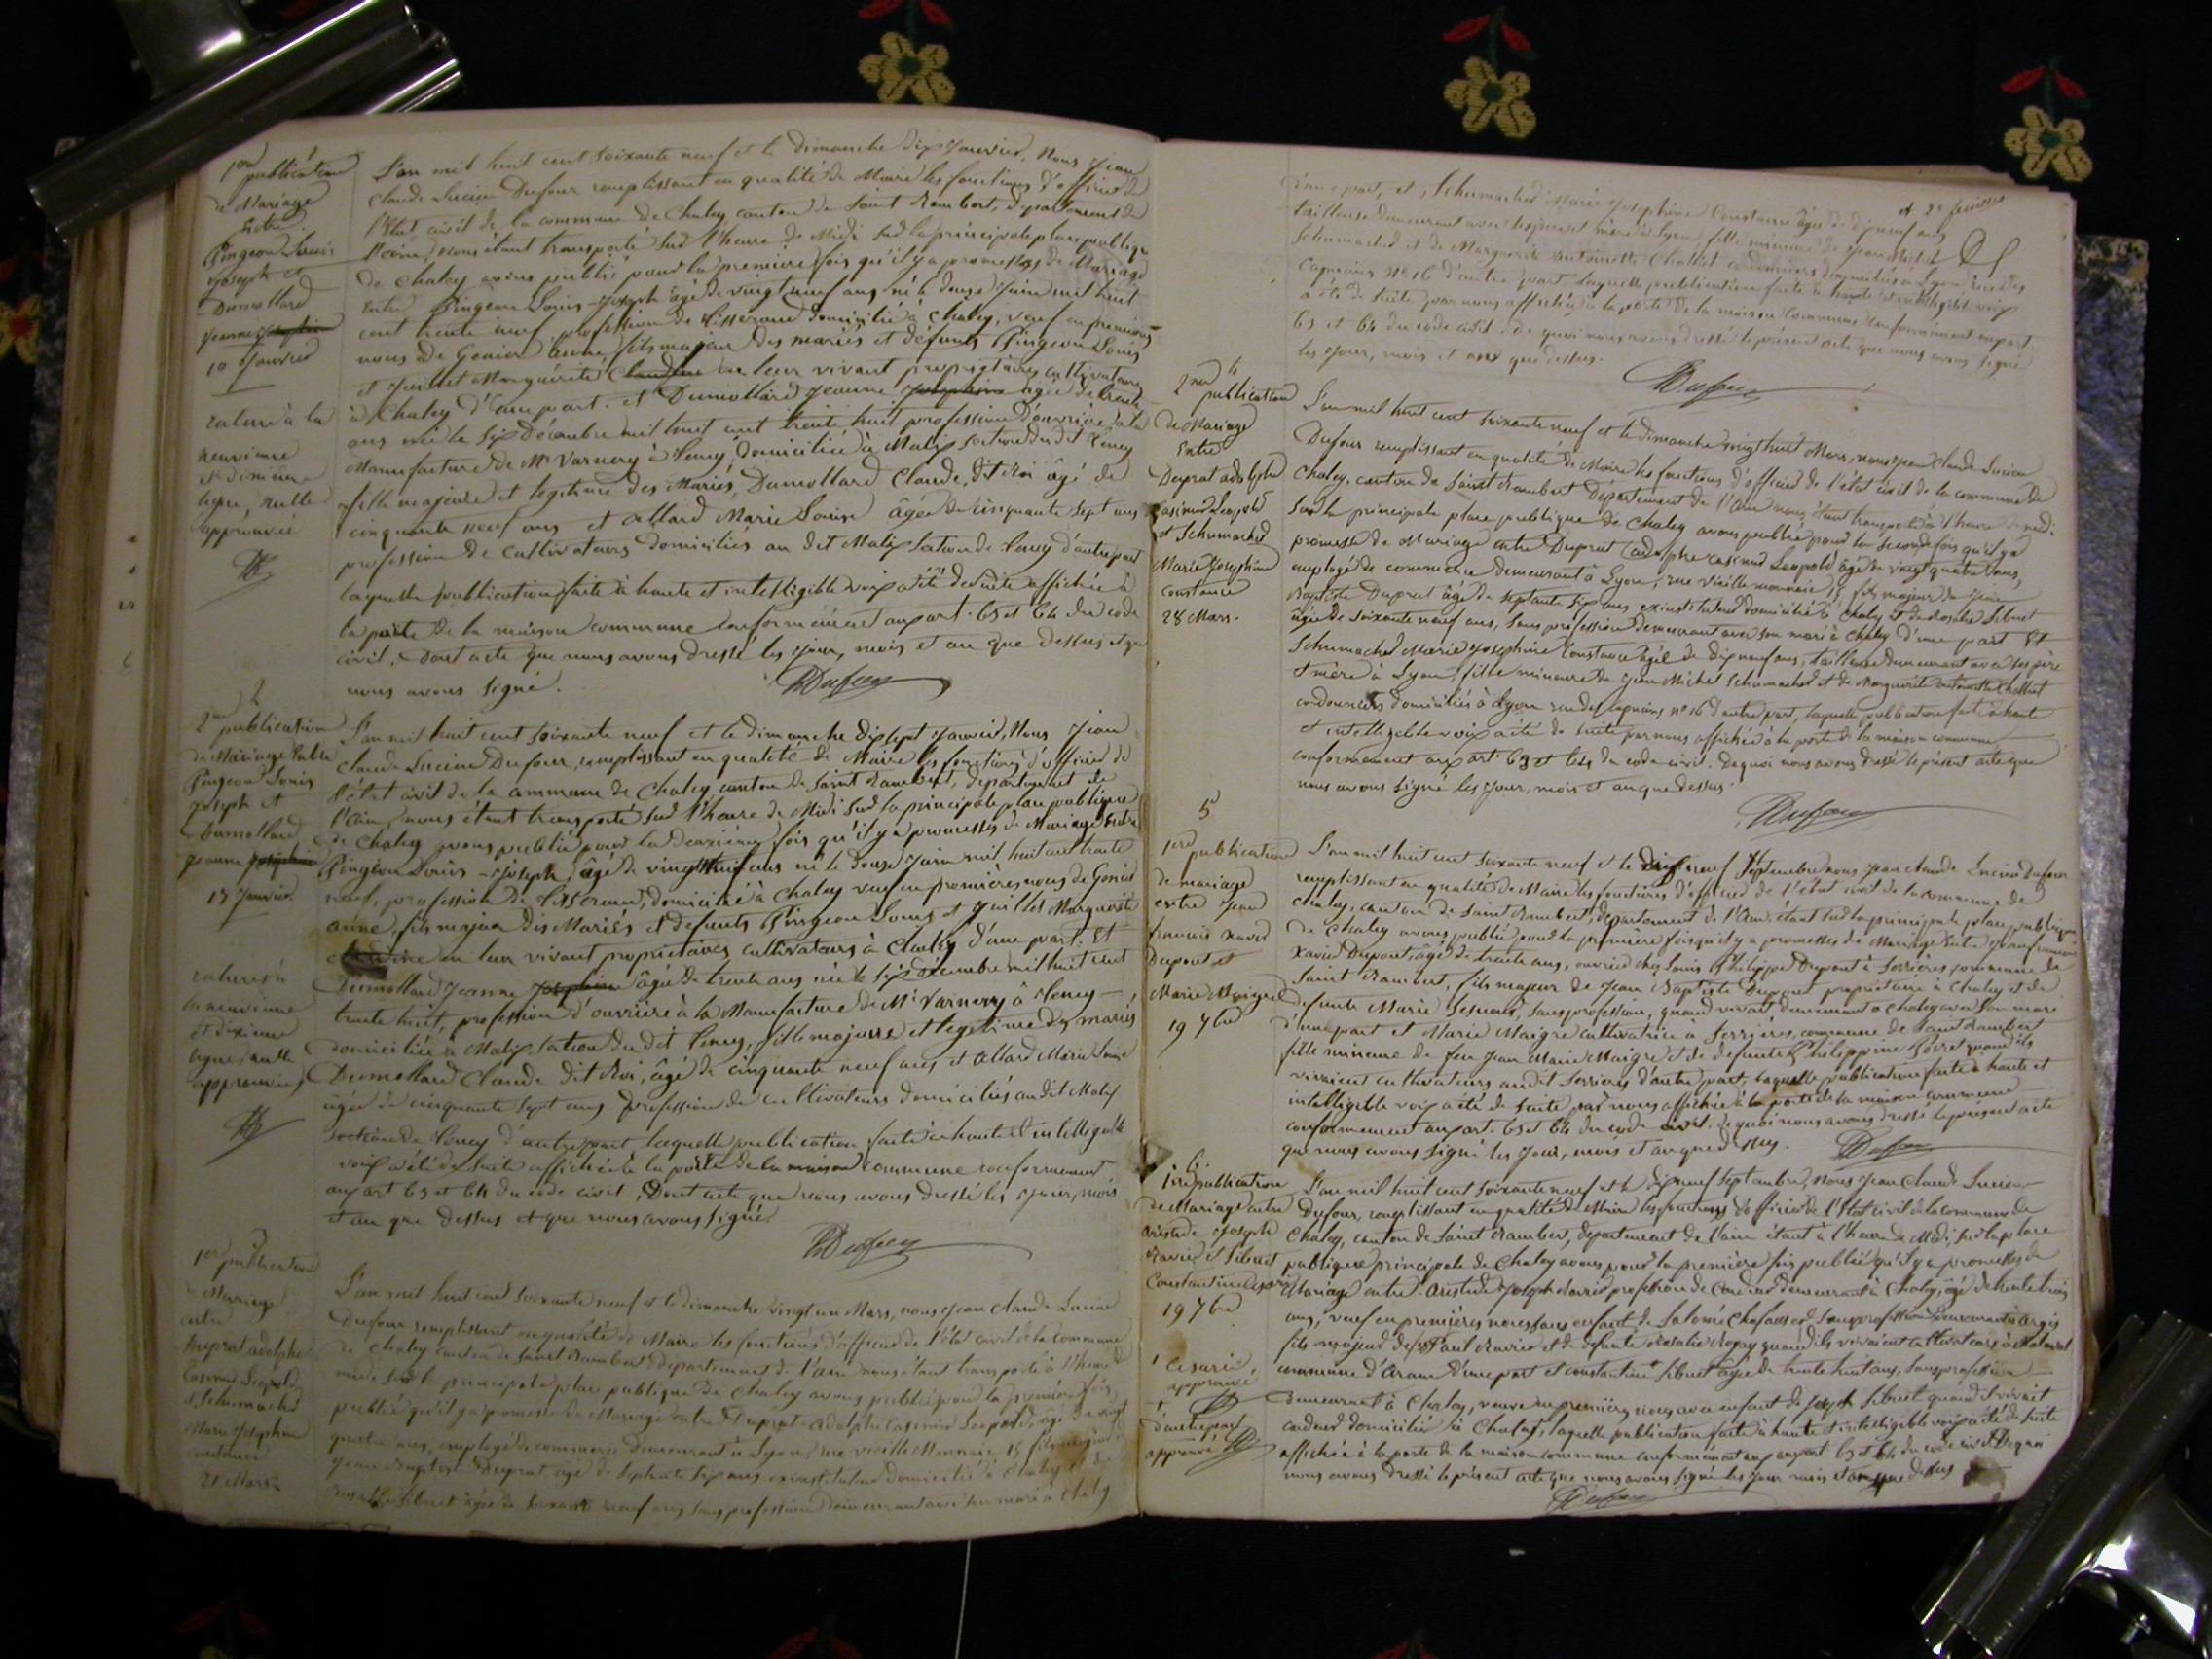 1
1ere publication
de Mariage
Entre
Pingeon Louis
Joseph et
Dumollard
Jeanne Josephine
10 Janvier
rature à la
neuvième
et dixième
ligne, nulle
approuvée
L'an mil huit cent soixante neuf et le dimanche dix Janvier, Nous Jean
Claude Lucien Dufour remplissant en qualité de Maire les fonctions d'officier de
l'Etat civil de la commune de Chaley canton de Saint Rambert, département de
l'Ain, nous étant transporté sur l'heure de Midi sur la principale place publique
de Chaley avons publié pour la première fois qu'il y a promesses de Mariage
entre Pingeon Louis Joseph âgé de vingt neuf ans né le douze Juin mil huit
cent trente neuf, profession de tisserand domicilié à Chaley, veuf en premières
nous de Gonier anne, fils majeur des mariés et défunts Pingeon Louis
et Juillet Marguerite Claudine en leur vivant propriétaires cultivateurs
à Chaley d'une part. et Dumollard Jeanne Josephine âgée de trente
ans née le six Décembre mil huit cent trente huit profession d'ouvrière à la
Manufacture de Mr Varnery à Tenay, domiciliée à Malix section dudit Tenay
fille majeure et legitime des Mariés, Dumollard Claude, dit Roi âgé de
cinquante neuf ans et Allard Marie Louise âgée de cinquante sept ans
profession de cultivateurs domiciliés au dit Malix section de Tenay d'autre part
laquelle publication faite à haute et intelligible voix a été de suite affichée à
la porte de la maison commune conformément aux art. 63 et 64 du code
civil, Dont acte que nous avons dressé les jour, mois et an que dessus et que
nous avons signé.
Dufour
2
2me publication
de Mariage Entre
Pingeon Louis
Joseph et
Dumollard
Jeanne Josephine
17 Janvier
ratures à
la neuvième
et dixième
ligne, nulle
approuvées
L'an mil huit cent soixante neuf et le dimanche dix sept Janvier, Nous Jean
Claude Lucien Dufour, remplissant en qualité de Maire les fonctions d'officier de
l'état civil de la commune de Chaley canton de Saint Rambert, département de
l'Ain, nous étant transporté sur l'heure de Midi sur la principale place publique
de Chaley avons publié pour la deuxième fois qu'il y a promesses de Mariage Entre
Pingeon Louis - Joseph, âgé de vingt neuf ans né le douze Juin mil huit cent trente
neuf, profession de tisserand, domicilié à Chaley veuf en premières nous de Gonier
anne, fils majeur des Mariés et defunts Pingeon Louis et Juillet Marguerite
Claudine en leur vivant propriétaires cultivateurs à Chaley d'une part. Et
Dumollard Jeanne Josephine âgée de trente ans née le six décembre mil huit cent
trente huit, profession d'ouvrière à la Manufacture de Mr Varnery à Tenay -
domiciliée à Malix section du dit Tenay, fille majeure et legitime des mariés
Dumollard Claude dit Roi, âgé de cinquante neuf ans et Allard Marie Louise
âgée de cinquante sept ans profession de cultivateurs domiciliés au dit Malix
section de Tenay d'autre part laquelle publication faite à haute et intelligible
voix a été de suite affichée à la porte de la maison commune conformément
aux art 63 et 64 du code civil, Dont acte que nous avons dressé les jour, mois
et an que dessus et que nous avons signé
Dufour
3
1ere publication
de Mariage
entre
Duprat adolphe
Casimir Leopold
et Schumacher
Marie Josephine
constance
21 Mars
L'an mil huit cent soixante neuf et le dimanche vingt un Mars, nous Jean Claude Lucien
Dufour remplissant en qualité de Maire les fonctions d'officier de l'état civil de la commune
de Chaley canton de Saint Rambert département de l'ain nous étant transporté à l'heure de
midi sur la principale place publique de Chaley avons publié pour la première fois
publié qu'il y a promesses de Mariage entre Duprat Adolphe Casimir Leopold, âgé de vingt
quatre ans, employé de commerce demeurant à Lyon, rue vieille Monnaie 15 fils majeur de
Jean Baptiste Duprat âgé de septante six ans exinstituteur domicilié à Chaley et de
Rosalie Sibuet âgée de soixante neuf ans sans profession demeurant avec son mari à Chaley
et 2e feuillet
d'une part, et Schumacher Marie Josephine Constance âgée de dix neuf ans
tailleuse demeurant avec ses père et mère à Lyon, fille mineure de Jean Michel
Schumacher et de Marguerite Antoinette Challet cordonniers domiciliés à Lyon rue des
Capucins No 16 d'autre part, laquelle publication faite à haute et intelligible voix
a été de suite par nous affichée à la porte de la maison commune conformément aux art
63 et 64 du code civil. de quoi nous avons dressé le présent acte que nous avons signé
les jour, mois et an que dessus.
Dufour
4
2me publication
de Mariage
Entre
Duprat adolphe
Casimir Leopold
et Schumacher
Marie Josephine
constance
28 Mars.
L'an mil huit cent soixante neuf et le dimanche vingt huit Mars, nous Jean Claude Lucien
Dufour remplissant en qualité de Maire les fonctions d'officier de l'état civil de la commune de
Chaley, canton de Saint Rambert Département de l'Ain nous étant transporté à l'heure de midi
sur la principale place publique de Chaley avons publié pour la seconde fois qu'il y a
promesse de Mariage entre Duprat adolphe casimir Leopold âgé de vingt quatre ans,
employé de commerce demeurant à Lyon, rue vieille monnaie 15, fils majeur de Jean
Baptiste Duprat âgé de septante six ans exinstituteur domicilié à Chaley et de Rosalie Sibuet
âgée de soixante neuf ans, sans profession demeurant avec son mari à Chaley d'une part Et
Schumacher Marie Josephine Constance âgée de dix neuf ans, tailleuse demeurant avec ses père
et mère à Lyon, fille mineure de Jean Michel Schumacher et de Marguerite antoinette Challet
cordonniers domiciliés à Lyon rue des capucins no 16 d'autre part, laquelle publication faite à haute
et intelligible voix a été de suite par nous affichée à la porte de la maison commune
conformément aux art. 63 et 64 du code civil. De quoi nous avons dressé le présent acte que
nous avons signé les jour, mois et an que dessus.
Dufour
5
1ere publication
de mariage
entre Jean
francois xavier
Dupont et
Marie Maigre
19 7bre
L'an mil huit cent soixante neuf et le dix neuf Septembre nous Jean Claude Lucien Dufour
remplissant en qualité de Maire les fonctions d'officier de l'état civil de la commune de
Chaley, canton de Saint Rambert, département de l'Ain, étant sur la principale place publique
de Chaley avons publié pour la première fois qu'il y a promesses de Mariage Entre Jean francois
Xavier Dupont, âgé de trente ans, ouvrier chez Louis Philippe Dupont à Serrières, commune de
Saint Rambert, fils majeur de Jean Baptiste Dupont propriétaire à Chaley et de
defunte Marie sans profession, quand vivait demeurant à Chaley avec son mari
d'une part et Marie Maigre cultivatrice à Serrières, commune de Saint Rambert
fille mineure de feu Jean Marie Maigre et de defunte Philippine Poirret quand ils
vivaient cultivateurs au dit Serrieres d'autre part, laquelle publication faite à haute et
intelligible voix a été de suite par nous affichée à la porte de la maison commune
conformement aux art. 63 et 64 du code civil. De quoi nous avons dressé le présent acte
que nous avons signé les jour, mois et an que dessus.
Dufour
6.
1ere publication
de Mariage entre
aristide Joseph
Ravier et Sibuet
Constantine
19 7bre
approuvé
d'autre part
approuvé
L'an mil huit cent soixante neuf et le dix neuf Septembre, Nous Jean Claude Lucien
Dufour, remplissant en qualité de Maire les fonctions d'officier de l'Etat civil de la commune de
Chaley, canton de Saint Rambert, département de l'ain étant à l'heure de Midi, sur la place
publique principale de Chaley avons pour la première fois publié qu'il y a promesses de
Mariage entre Aristide Joseph Ravier profession de cardeur demeurant à Chaley, âgé de trente trois
ans, veuf en premières noces sans enfant de Salomé Chafaud sans profession demeurant à Argis
fils majeur de Paul Ravier et de defunte Rosalie quand ils vivaient cultivateurs à
commune d'Arane d'une part et constantine Sibuet âgée de trente huit ans, sans profession
demeurant à Chaley, veuve en premières noces avec enfant de Joseph Sibuet quand il vivait
cardeur domicilié à Chaley, laquelle publication faite à haute et intelligible voix a été de suite
affichée à la porte de la maison commune conformément aux art 63 et 64 du code civil. De quoi
nous avons dressé le présent acte que nous avons signé les jour mois et an que dessus
Dufour